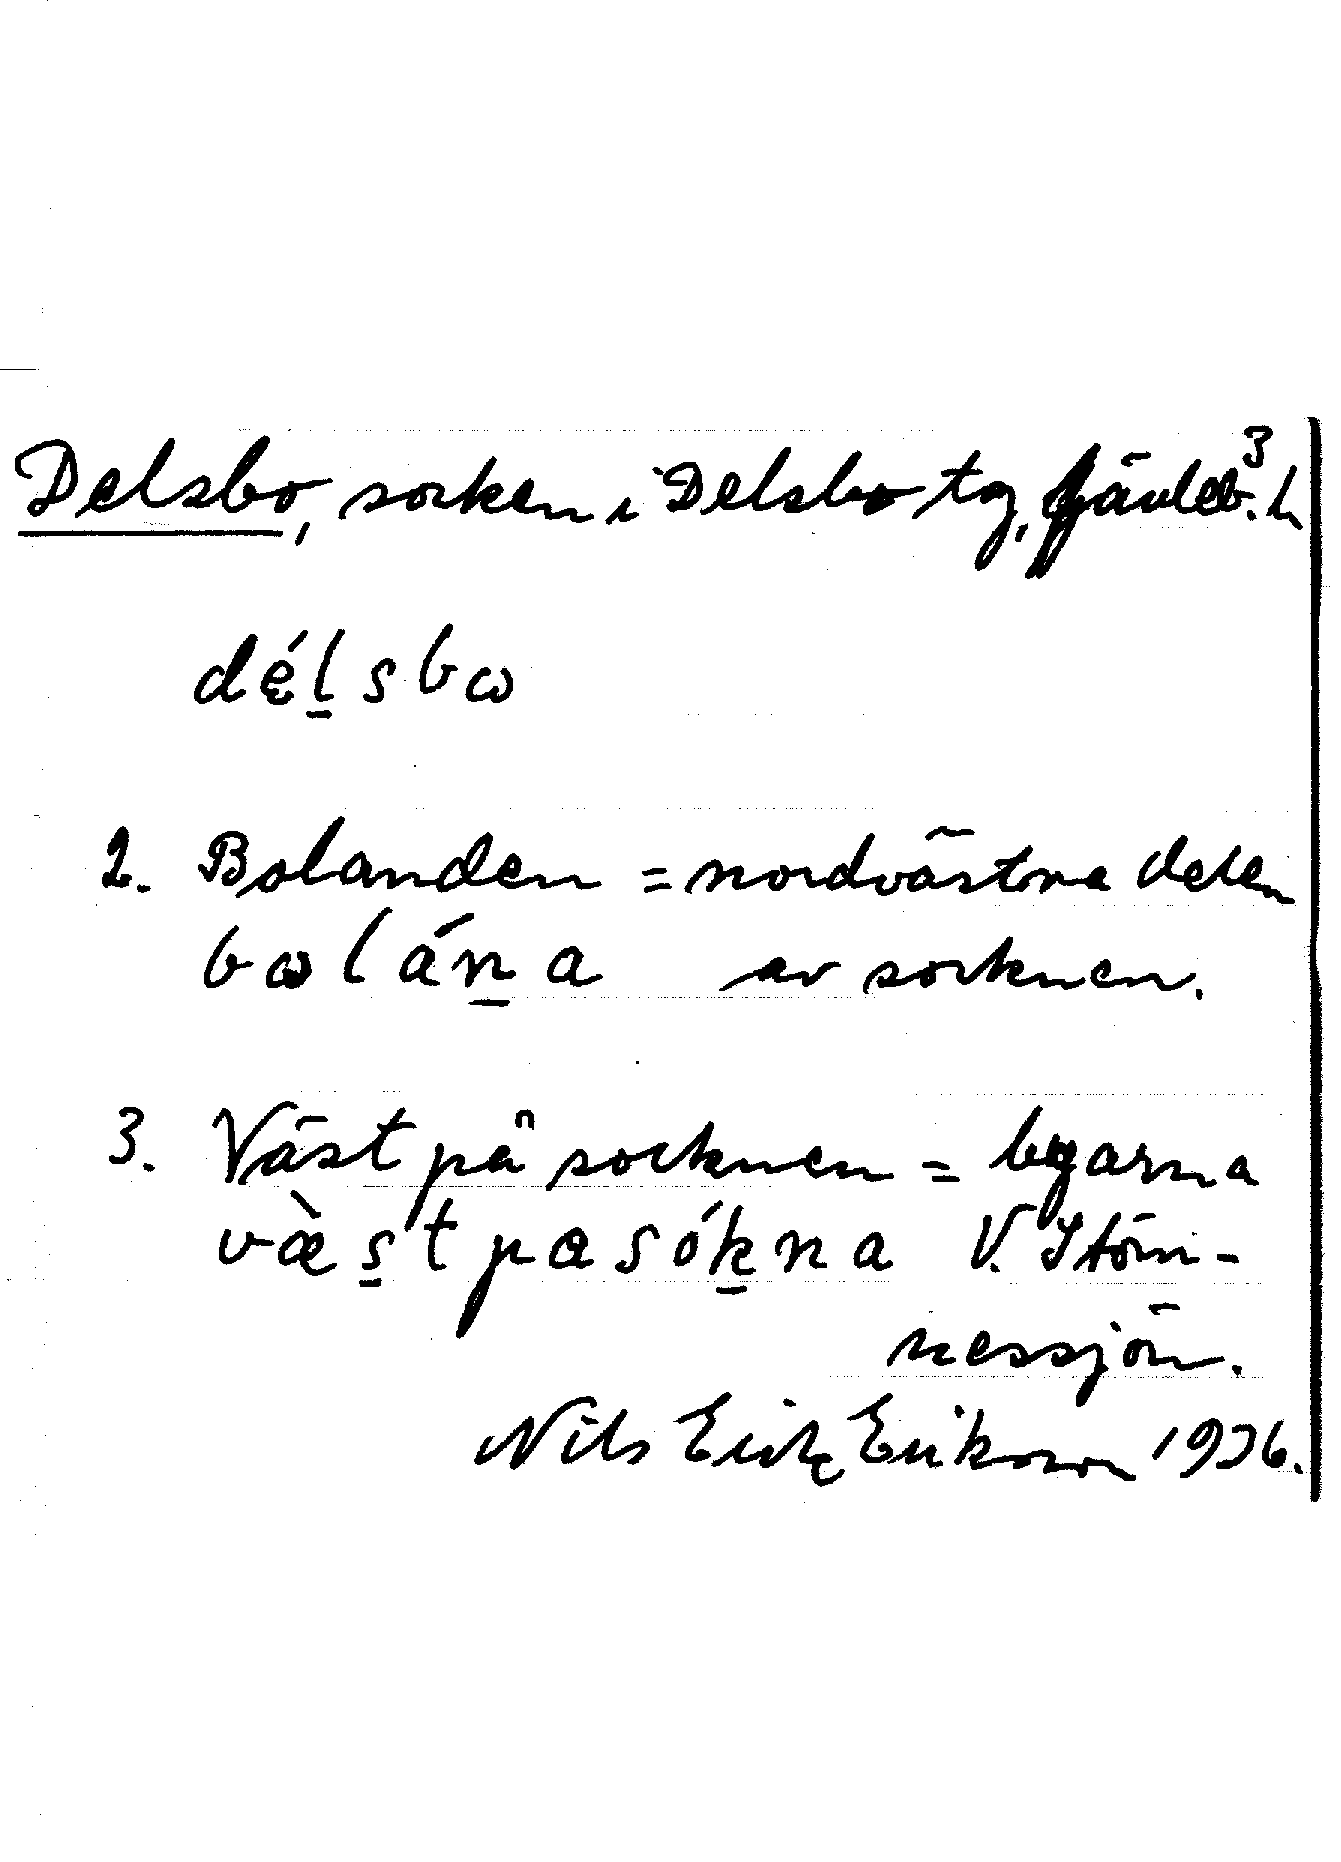 3
Delsbo, socken i Delsbo tg, Gävleb. l.
dę́l̠sbω
2. Bolanden = nordvästra delen
bωlán̠a av socknen.
3. Väst på socknen = byarna
væ̀s̠tpasók̠na V. Stöm-
nessjön.
Nils Erik Erikson 1936.